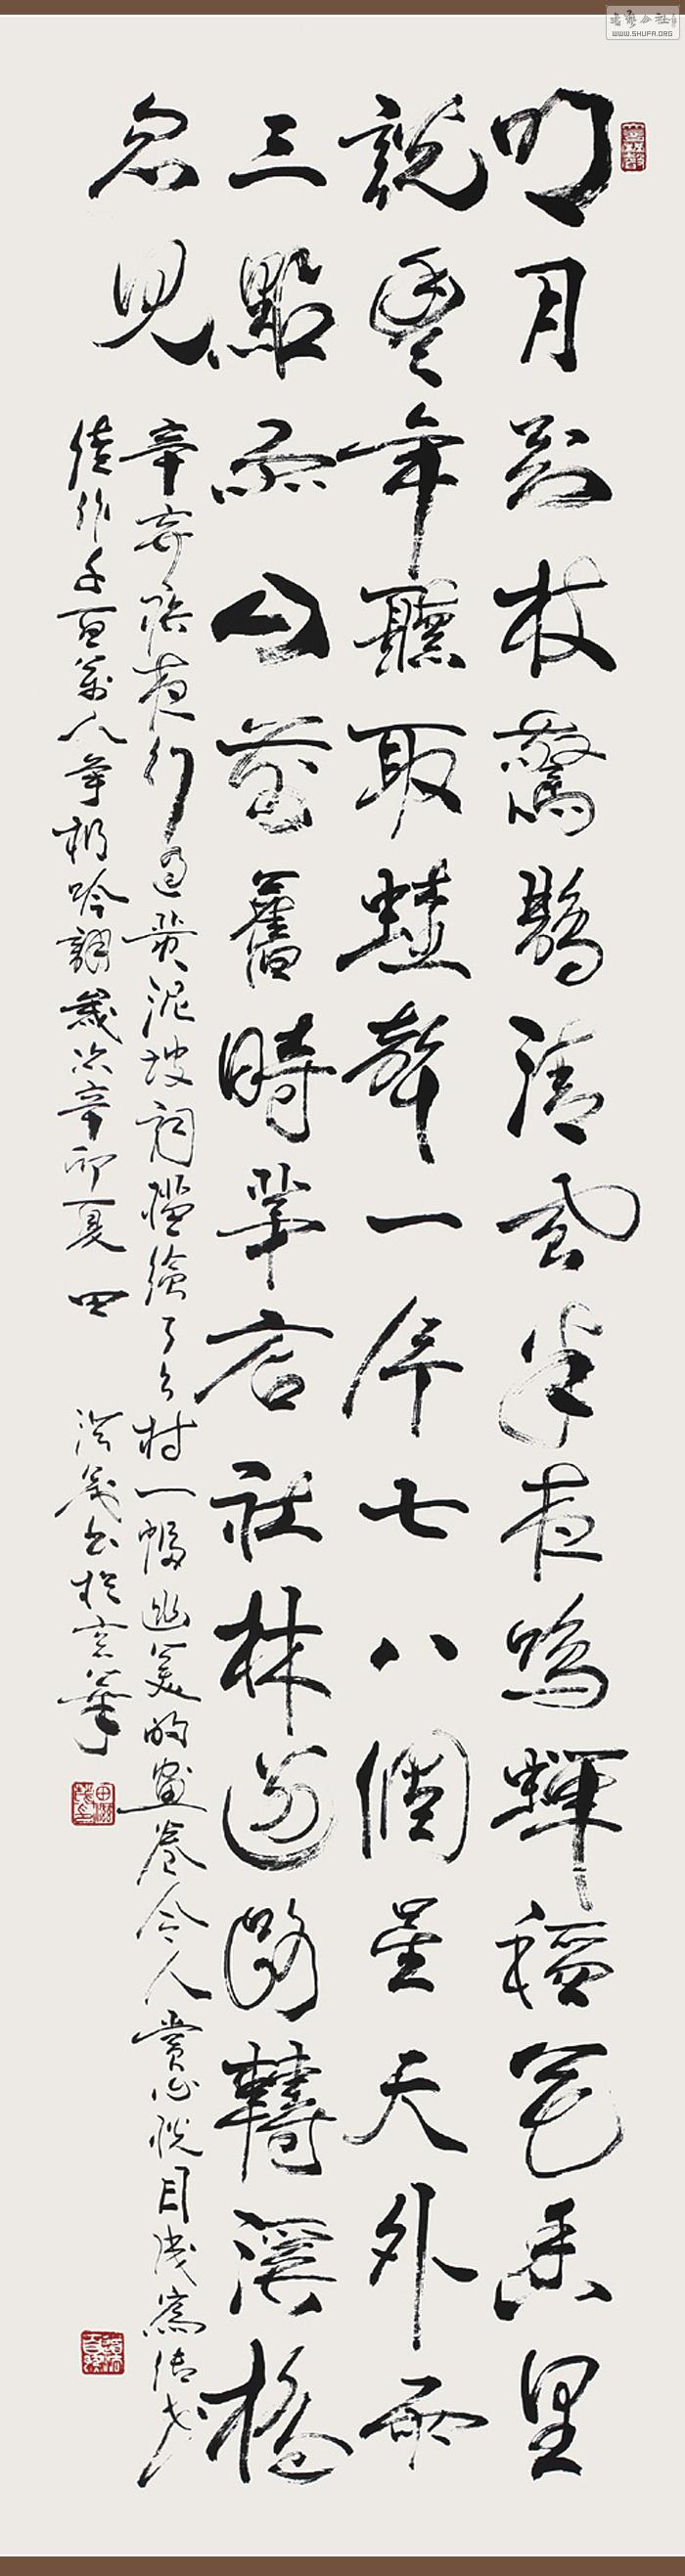 明月别枝驚鵲清風半夜鳴蟬稻花香里
說豐年聽取蛙聲一片七八個星天外兩
三點雨山前舊時茅店社林邊路轉溪橋
忽見
辛弃疾夜行過黄泥坡詞描繪了乡村一幅幽美的畫卷令人賞心悦目
佳作千百萬人争相吟誦歲次辛卯夏 田
书於京華
WWW.SHUFA.ORG